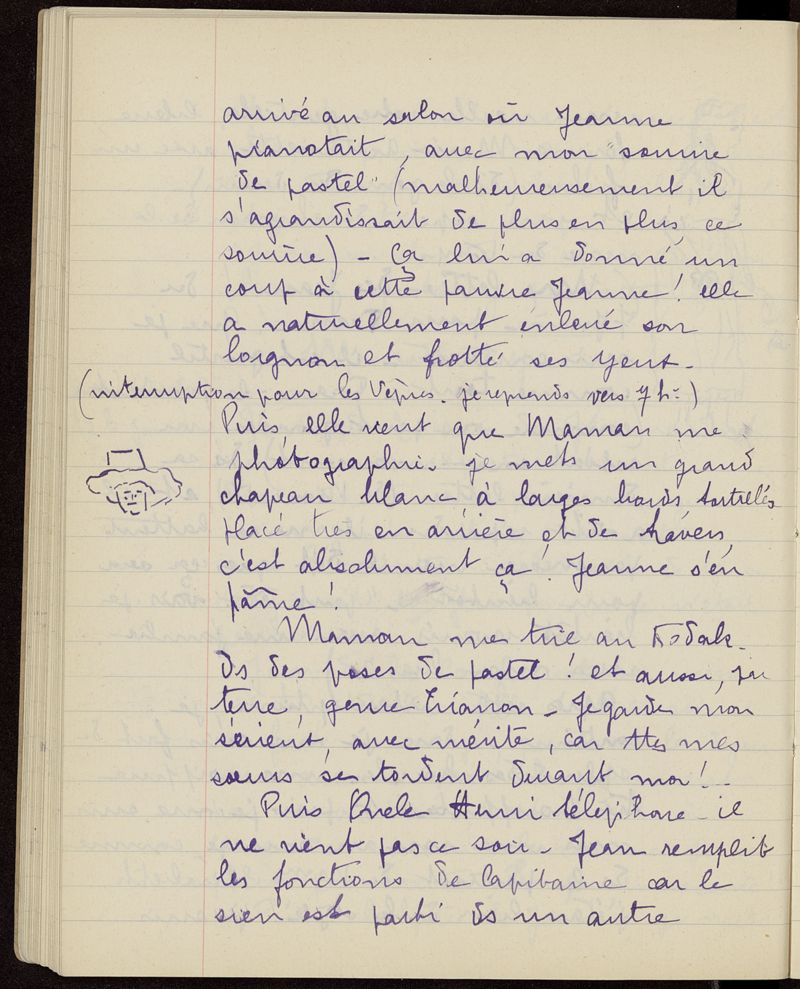 arrivé au salon où Jeanne
pianotait, avec mon "sourire
de pastel" (malheureusement il
s'agrandissait de plus en plus, ce
sourire) - Ça lui a donné un
coup à cette pauvre Jeanne! elle
a naturellement enlevé son
lorgnon et frotté ses yeux.
(interruption pour les Vêpres. je reprends vers 7h=)
Puis, elle veut que Maman me
photographie. je mets un grand
chapeau blanc à larges bords,
placé très en arrière et de travers,
c'est absolument ça! Jeanne s'en
pâme!
Maman me tire au Kodak.
ds des poses de pastel! et aussi, par
terre, genre Trianon - Je garde mon
sérieux, avec mérite, car ttes mes
sœurs se tordent devant moi!..
Puis Oncle Henri téléphone - il
ne vient pas ce soir - Jean remplit
les fonctions de Capitaine car le
sien est parti ds un autre